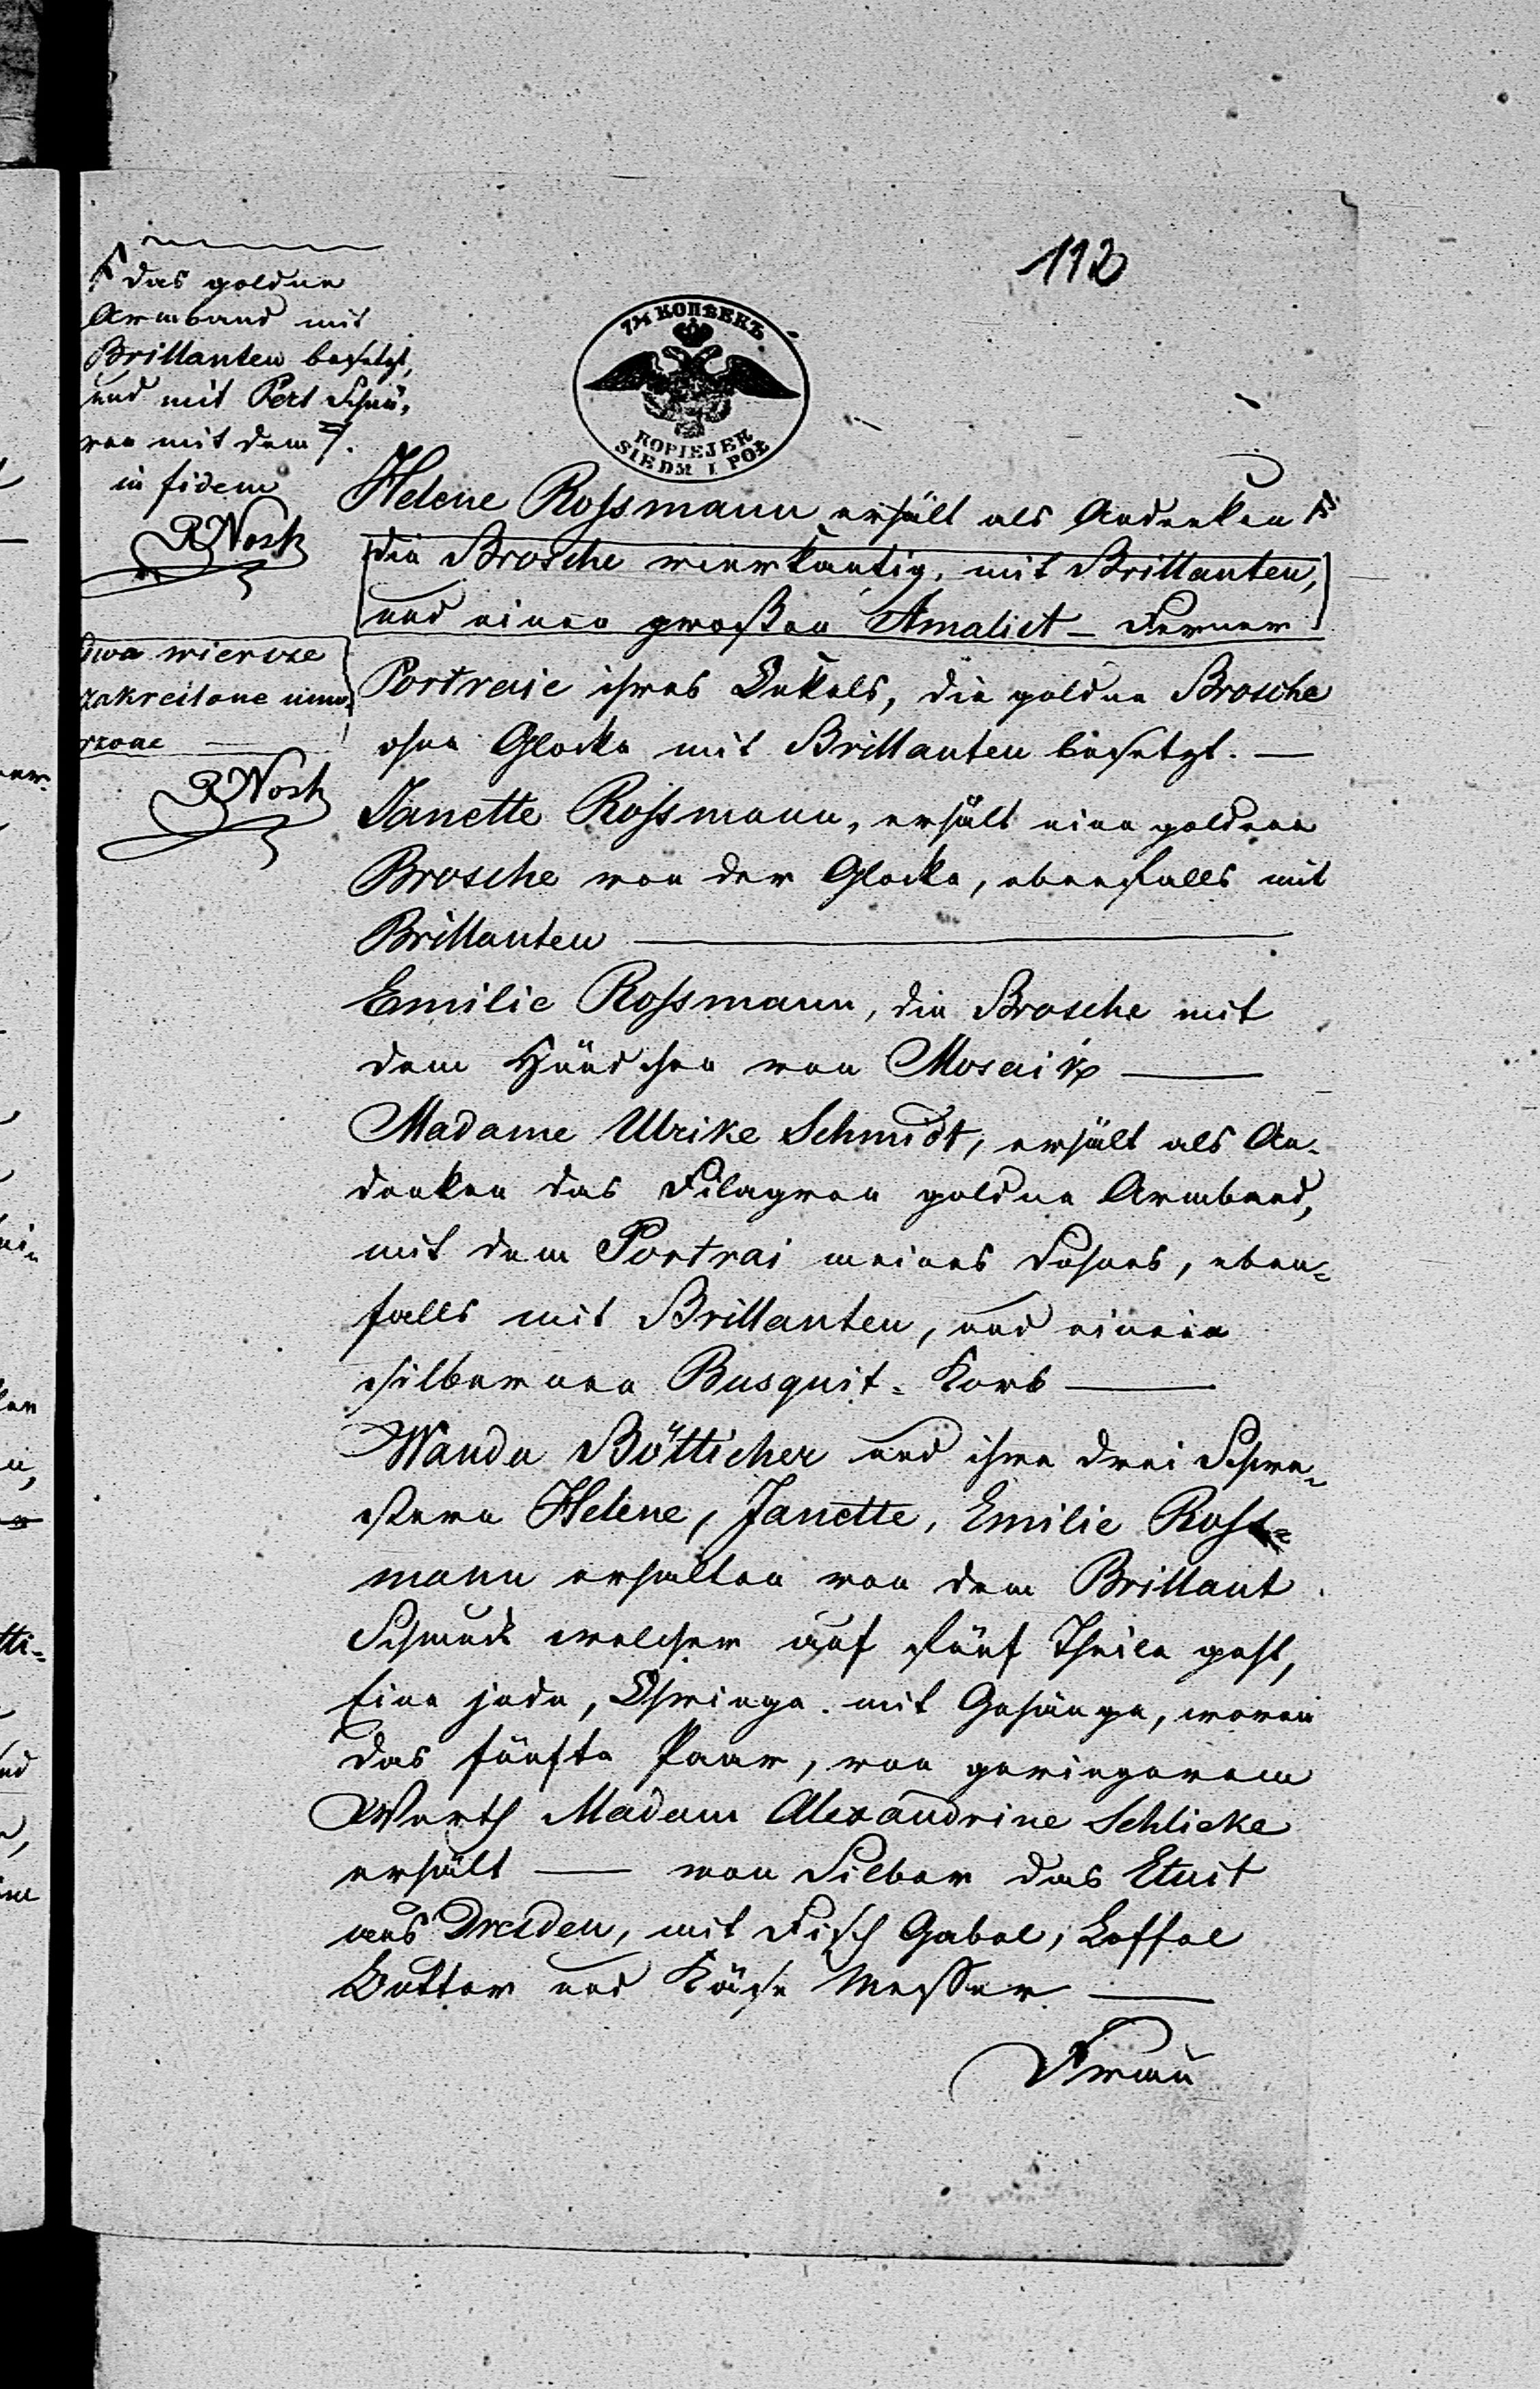 112
7½ КОПѢЕКЪ
KOPIEJEK
SIEDM I PÓŁ
das goldne
Armband mit
Brillanten besetzt,
und mit Perl Schnü,
ren mit dem
in fidem
RNosk
Helene Rossmann erhält als Andenken
die Brosche vierkantig, mit Brillanten,
und einen großen Amalist – Ferner
Portraie ihres Onkels, die goldne Brosche
ohne Glocke mit Brillanten besetzt. —
dwa wiersze
zakreślone umo-
rzone —
RNosk
Janette Rossmann, erhält eine goldene
Brosche von der Glocke, ebenfalls mit
Brillanten —
Emilie Rossmann, die Brosche mit
dem Hündchen von Mosaik —
Madame Ulrike Schmidt, erhält als An-
denken das Filagren goldne Armband,
mit dem Portrai meines Sohnes, eben=
falls mit Brillanten, und einein
silbernen Busquit-Korb —
Wanda Bötticher und ihre drei Schwe-
stern Helene, Janette, Emilie Ross=
mann erhalten von dem Brillant
Schmuck welcher auf fünf Theile geht,
Eine jede, Ohringe mit Gehänge, wovon
das fünfte Paar, von geringerem
Werth Madam Alexandrine Schlicke
erhält — von Silber das Etuit
aus Dresden, mit Fisch Gabel, Loffel
Butter und Käse Messer —
Frau